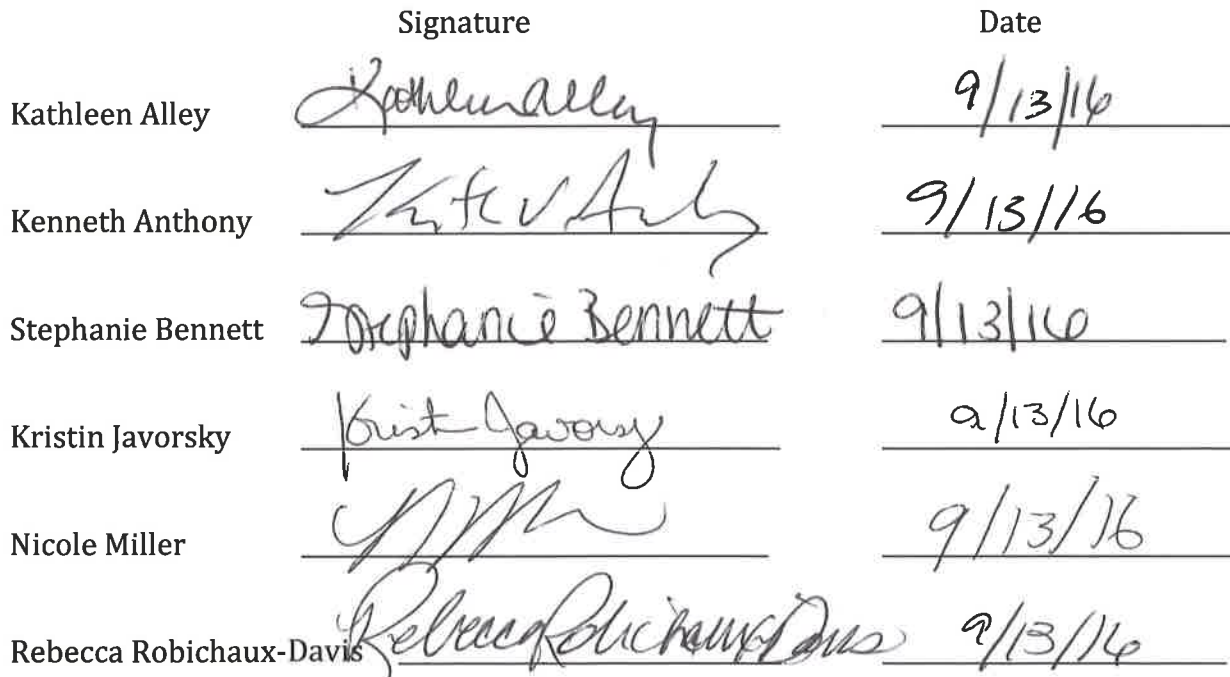 Signature Date
Kathleen Alley Kathleen Alley 9/13/16
Kenneth Anthony 9/13/16
Stephanie Bennett Stephanie Bennett 9/13/16
Kristin Javorsky Kristin Javorsky 9/13/16
Nicole Miller 9/13/16
Rebecca Robichaux-Davis Rebecca Robichaux-Davis 9/13/16